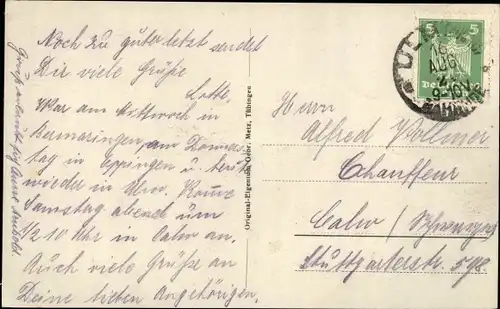 Noch zu guter letzt sendet
Dir viele Grüße
Lotte.
War am Mittwoch in
am Donners
tag in Eppingen u. heute
wieder in Ulm. Komme
Samstag abend um
1/2 10 Uhr in Calw an.
Auch viele Grüße an
Deine lieben Angehörigen.
Original-Eigentum Gebr. Metz, Tübingen
5
ULM
AUG
9-10
BAHNHOF
Herrn
Alfred Vollmer
Chauffeur
Calw / Schwarzw.
Stuttgarterstr. 598.